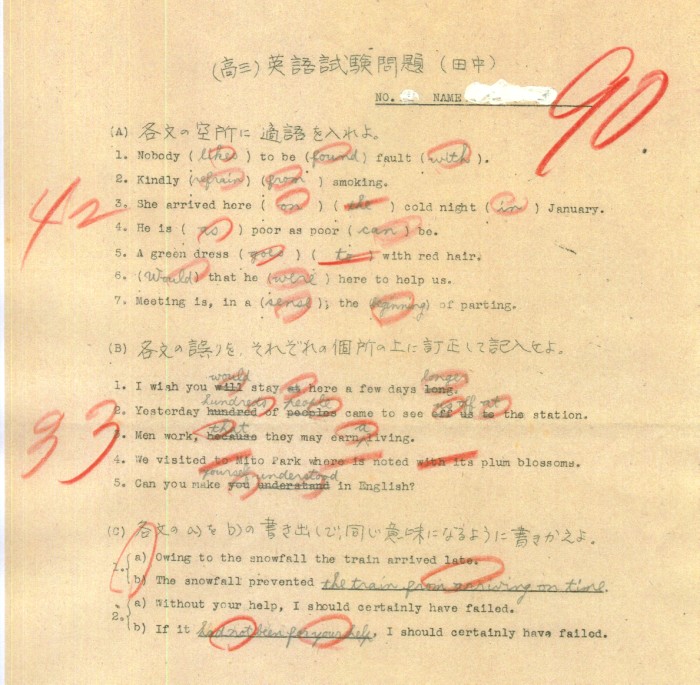 (高三) 英語試験問題 (田中)
90
NO. NAME
(A) 各文の空所に適語を入れよ。
1. Nobody (likes) to be (found) fault (with).
2. Kindly (refrain) (from) smoking.
42
3. She arrived here (on) (the) cold night (in) January.
4. He is (as) poor as poor (can) be.
5. A green dress (goes) (to) with red hair.
6. (Would) that he (were) here to help us.
7. Meeting is, in a (sense), the (beginning) of parting.
(B) 各文の誤りを、それぞれの個所の上に訂正して記入せよ。
would longer
1. I wish you will stay at here a few days long.
hundreds people off at
2. Yesterday hundred of peoples came to see off us to the station.
that a
33
3. Men work, because they may earn living.
4. We visited to Mito Park where is noted with its plum blossoms.
yourself understood
5. Can you make you understand in English?
(C) 各文のa)をb)の書き出しで、同じ意味になるように書きかえよ。
1. a) Owing to the snowfall the train arrived late.
b) The snowfall prevented the train from arriving on time.
2. a) Without your help, I should certainly have failed.
b) If it had not been for your help, I should certainly have failed.